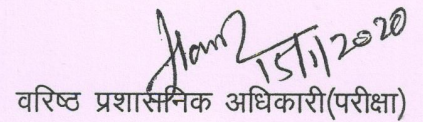 15/1/2020
वरिष्ठ प्रशासनिक अधिकारी(परीक्षा)